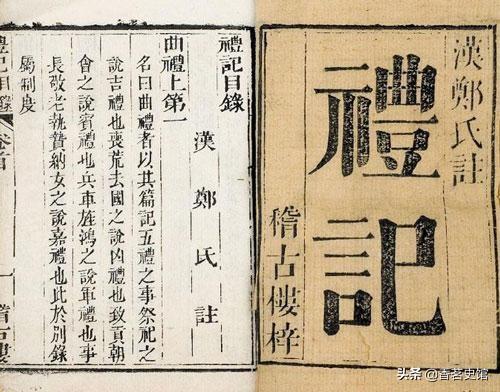 漢鄭氏註
禮記
稽古樓梓
禮記目錄
漢鄭氏註
曲禮上第一
名曰曲禮者以其篇記五禮之事祭祀之
說吉禮也喪荒去國之說凶禮也致貢朝
會之說賓禮也兵車旌鴻之說軍禮也事
長敬老執贄納女之說嘉禮也此於別錄
屬制度
禮記目錄 卷首 一 稽古樓
头条 @香茗史馆